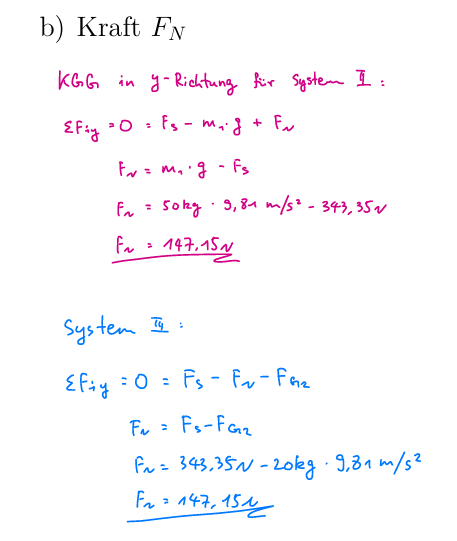 b) Kraft F_N
KGG in y-Richtung für System I :
ΣFiy = 0 = Fs - m₁·g + FN
FN = m₁·g - Fs
FN = 50kg · 9,81 m/s² - 343,35N
FN = 147,15N
System II :
ΣFiy = 0 = Fs - FN - FG2
FN = Fs-FG2
FN = 343,35N - 20kg · 9,81 m/s²
FN = 147,15N